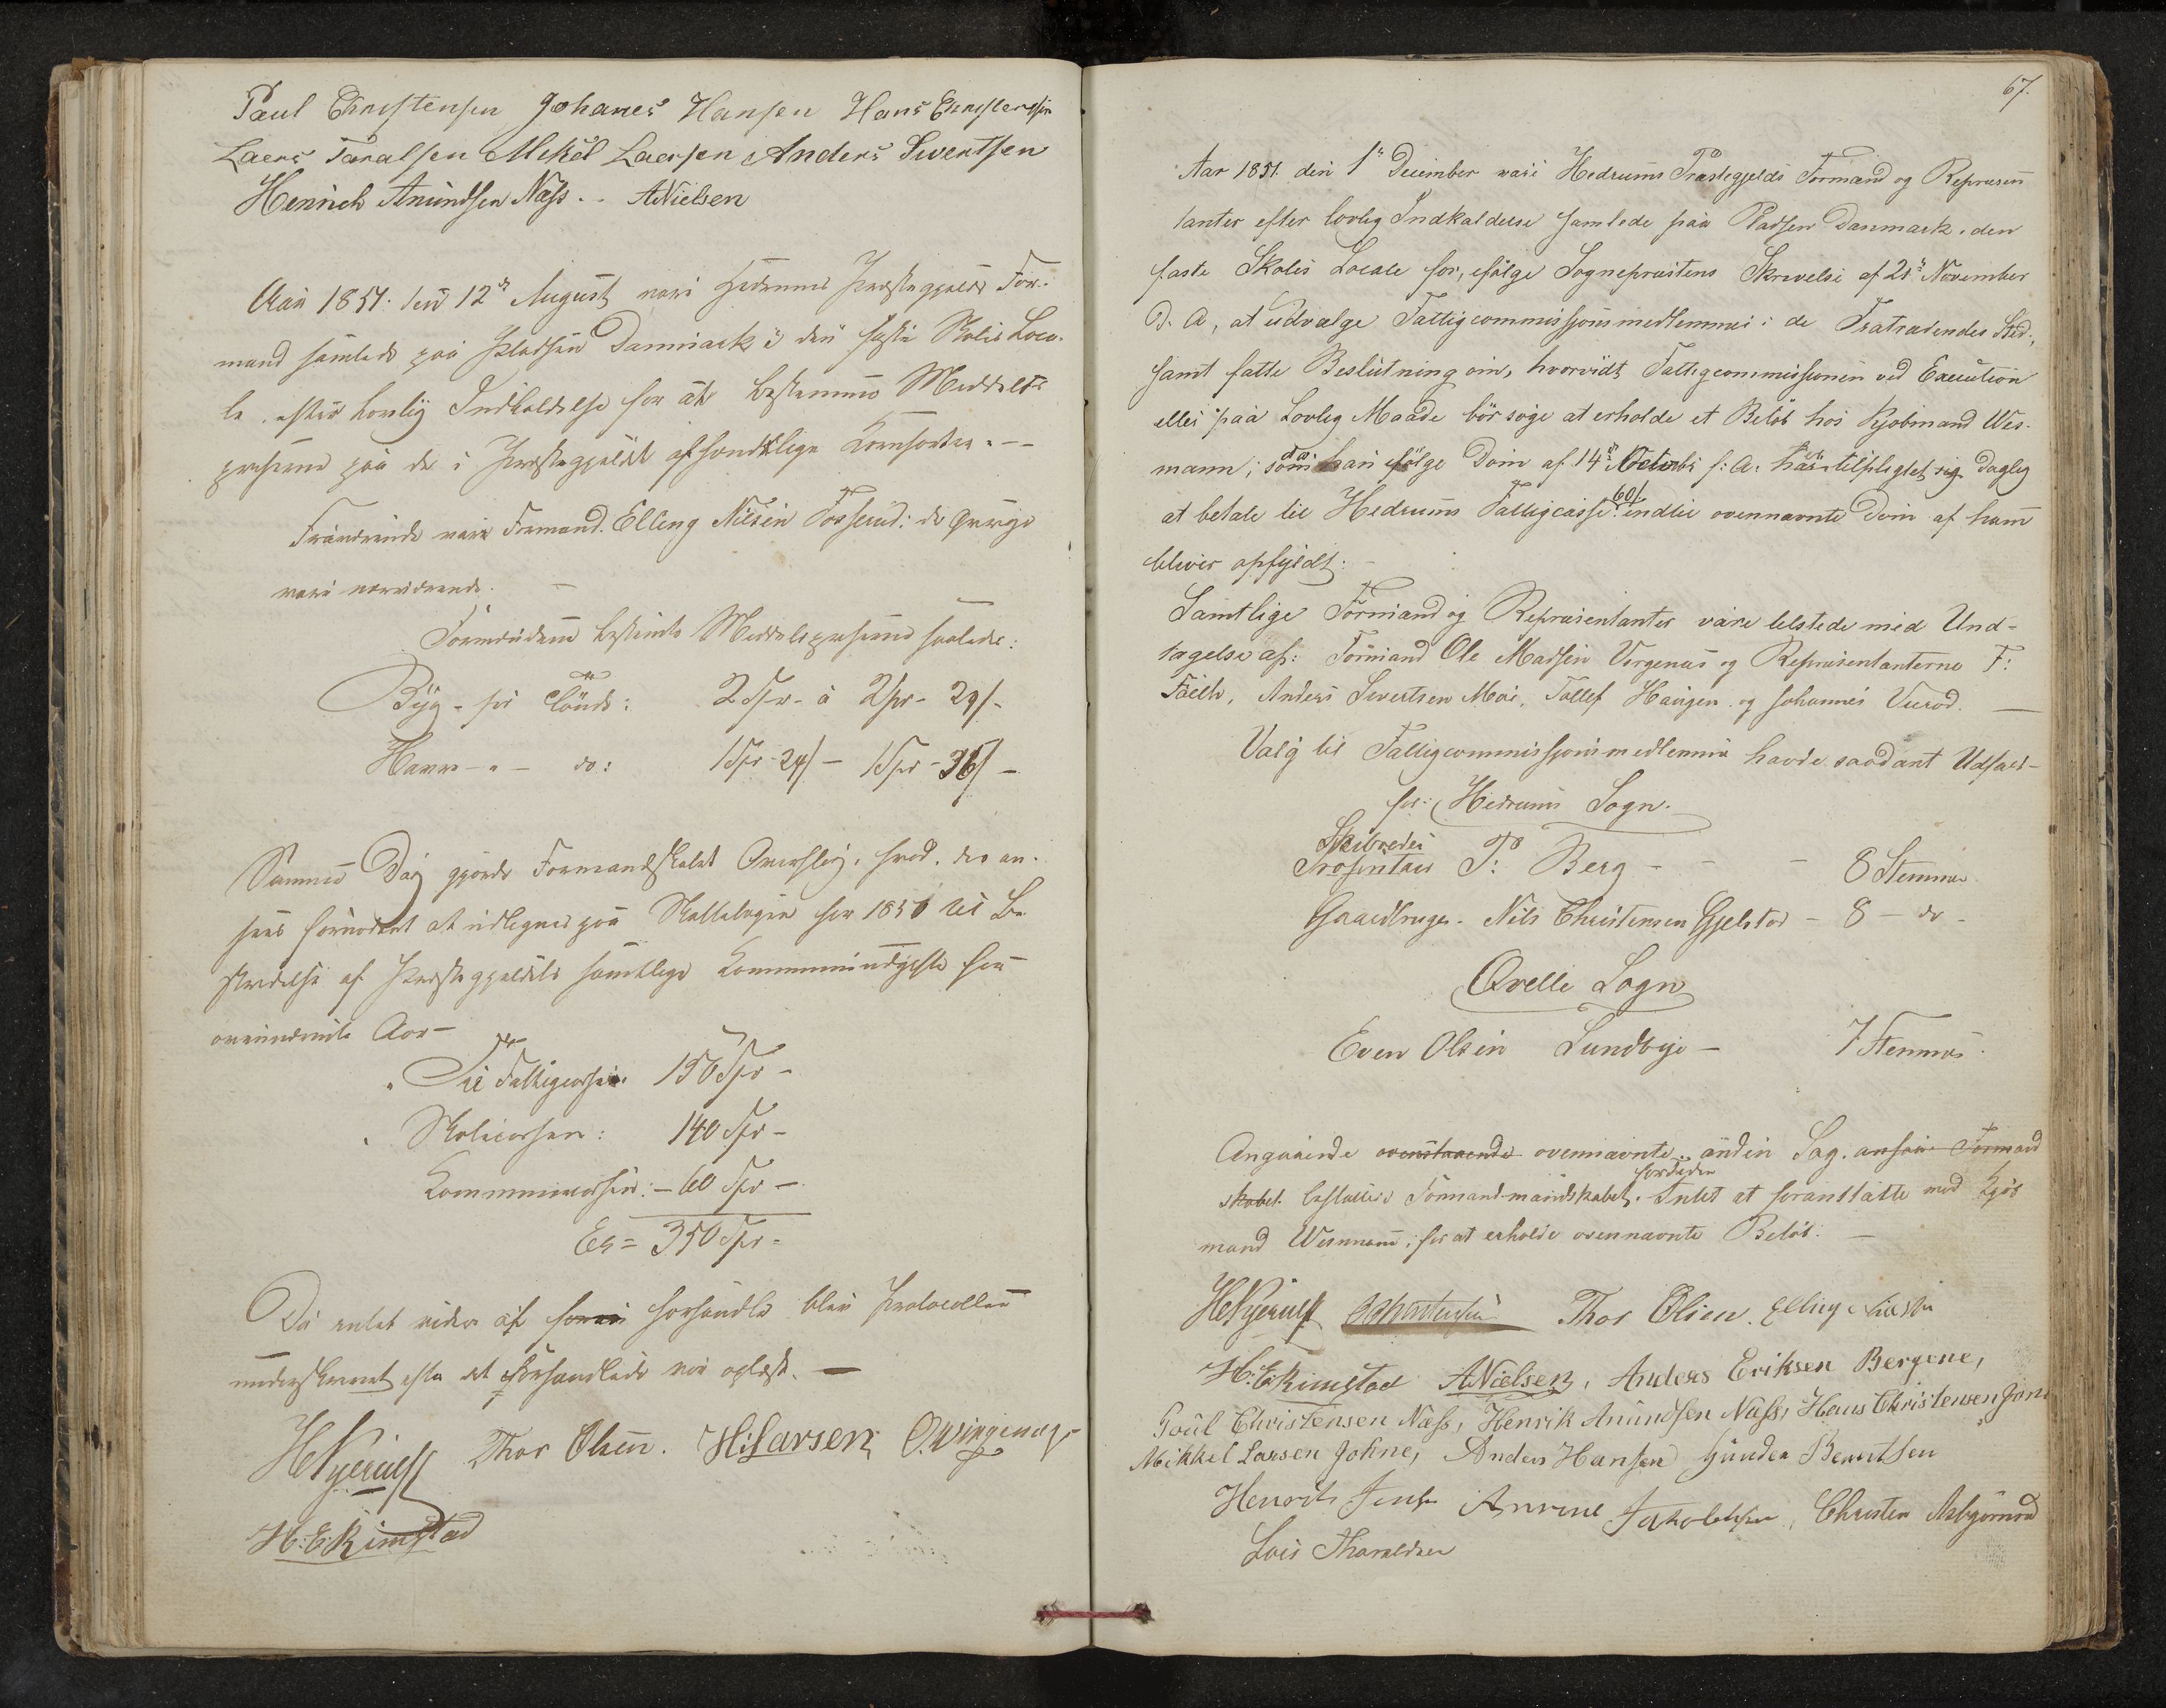 Paul Christensen Johanes Hansen Hans Christensen
Laers Taralsen Mekel Laersen Anders Sivertsen
Henrich Amundsen Næss. . ANielsen
Aar 1851. den 12te August vare Hedrums Præstegjelds For-
mænd samlede paa Pladsen Danmark i den faste Skoles Loca-
le efter lovlig Indkaldelse for at bestemme Middels
priserne paa de i Præstegjeldet afhændelige Kornsorter. --
Fraværende vare Formænd. Elling Nilsen Fosserud: de øvrige
vare nærværende. -
Formændene bestemte Middelspriserne saaledes:
Byg - pr Tønde: 2 Spr - à 2 Spr - 24 / -
Havre - " - do: 1 Spr - 24 / - 1 Spr - 36 / -
Samme Dag gjorde Formandskabet Overslag, hvad der an-
sees fornødent at udlignes paa Skattelagene for 1851 til Be-
stridelse af Præstegjeldets samtlige Kommuneudgifter for
ovennævnte Aar -
" Til Fattigcassen 150 Spr -
" Skolecassen: 140 Spr -
Kommunecassen: - 60 Spr -
Er = 350 Spr -
Da intet videre at forhandle blev Protocollen
underskrevet efter at det forhandlede var oplæst. -
HNyeruss Thor Olsen. H:Larsen O.Wirgenæs
H. E. Rimstad
67.
Aar 1851. den 1te December vare Hedrums Præstegjelds Formænd og Repræsen
tanter efter lovlig Indkaldelse samlede paa Pladsen Danmark, den
faste Skoles Locale for, ifølge Sognepræstens Skrivelse af 21de November
d. A, at udvælge Fattigcommissionsmedlemmer i de Fratrædendes Sted,
samt fatte Beslutning om, hvorvidt Fattigcommissionen ved Execution
eller paa Lovlig Maade bør søge at erholde et Beløb hos Kjøbmand Wes-
mann; som da han følge Dom af 14de October f: A: har er tilpligtet sig daglig
at betale til Hedrums Fattigcasse 60/. indtil ovennævnte Dom af ham
bliver opfyldt. -
Samtlige Formænd og Repræsentanter vare tilstede med Und-
tagelse af: Formand Ole Madsen Virgenæs og Repræsentanterne F:
Anders Sivertsen Moe, Tollef Haugen og Johannes -
Valg til Fattigcommissionsmedlemmer havde saadant Udfald -
for: Hedrums Sogn.
Skibreder
P: Berg - - - 8 Stemmer
Gaardbruger. Nils Christensen Gjelstad - 8 - do -
Qvelle Sogn
Even Olsen Lundbye - 7 Stemmer.
Angaaende ovenstaaende ovennævnte anden Sag. ansaae Formand
skabet besluttede Formand mandskabet fortiden Intet at foranstalte med Kjøb
mand Wesmann, for at erholde ovennævnte Beløb. -
HNyeruss Thor Olsen. Elling Nielsen
H. E. Rimstad ANielsen, Anders Eriksen Bergene,
Poul Christensen Næss, Henrik Amundsen Næss, Hans Christensen
Mikkel Larsen Gohne, Anders Hansen Gunder Berntsen
Henrik Jensen Anund Jakobsen, Christen
Lars Tharaldsen